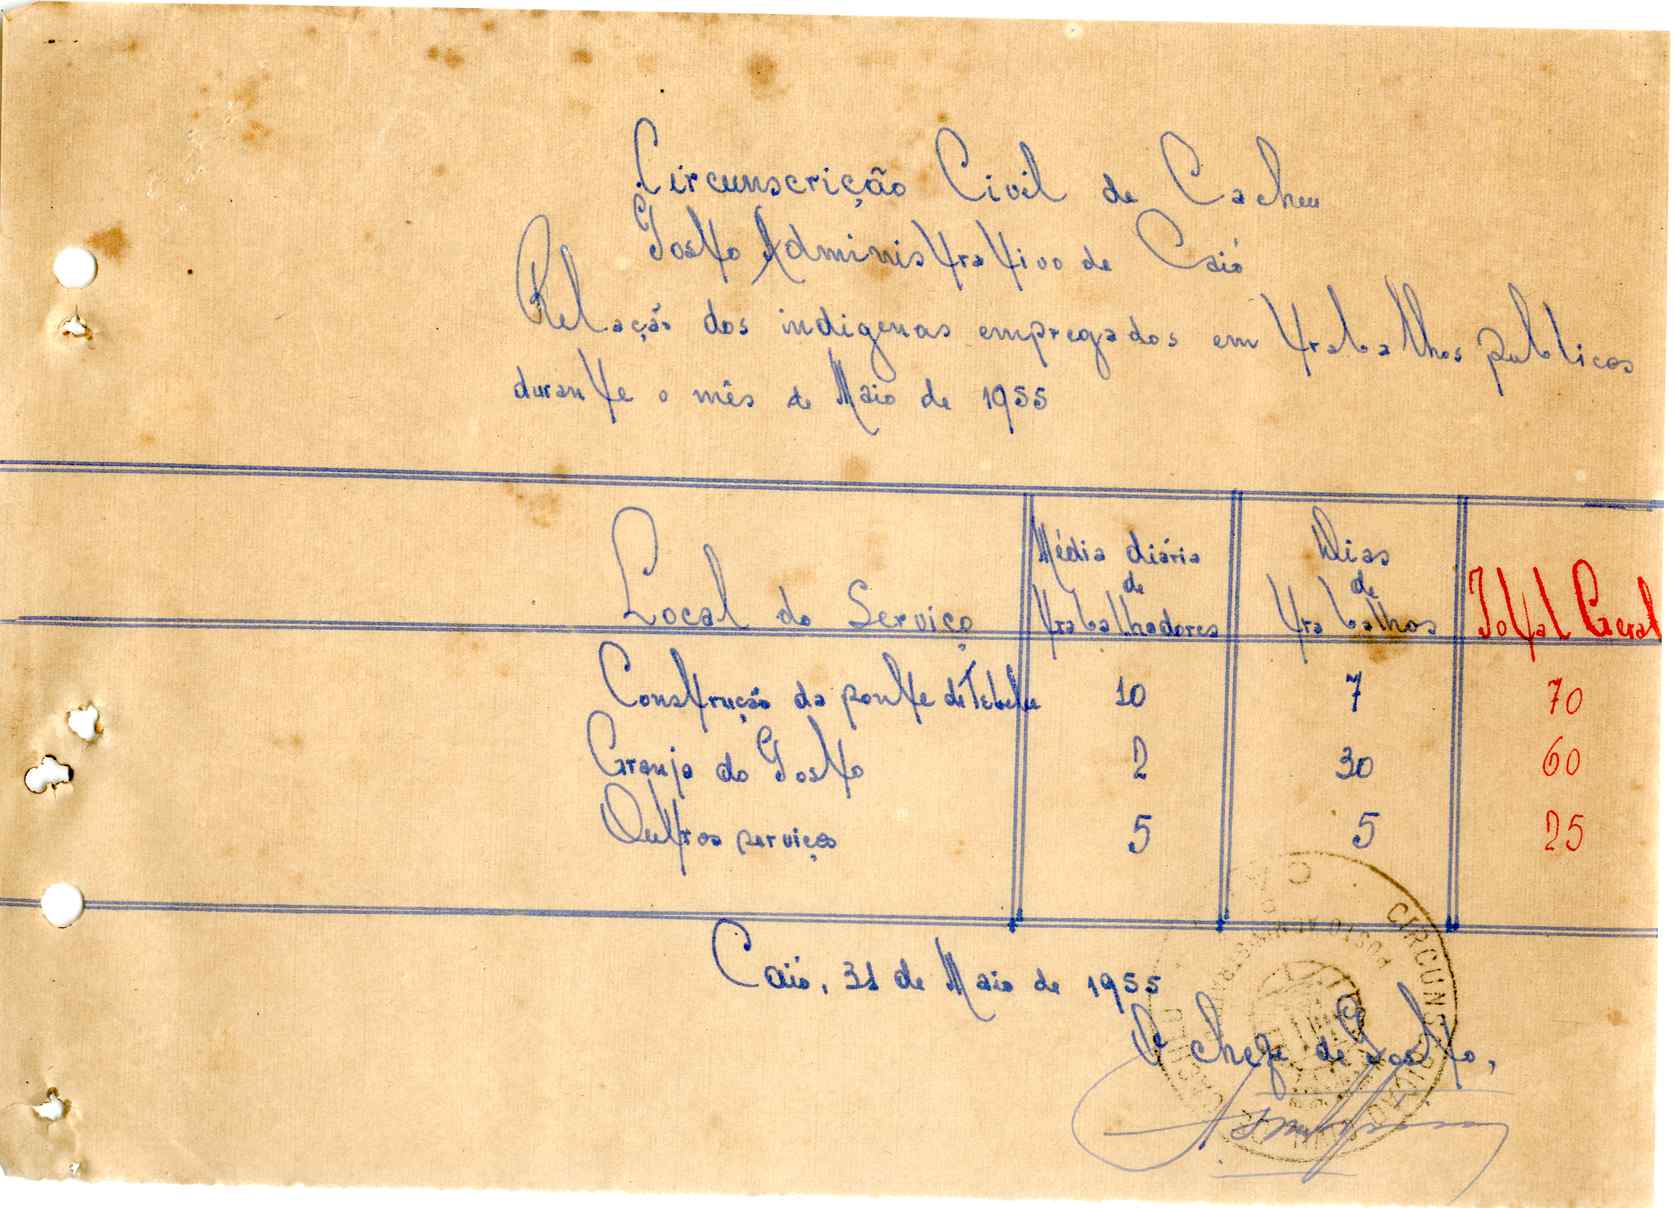 Circunscrição Civil de Cacheu
Posto Administrativo de Caió
Relação dos indigenas empregados em trabalhos publicos
durante o mês de Maio de 1955
Local do Serviço
Média diária
de
trabalhadores
Dias
de
trabalhos
Total Geral
Construção da ponte de 10 7 70
Granja do Posto 2 30 60
Outros serviços 5 5 25
Caió, 31 de Maio de 1955
O chefe de Posto,
CIRCUNSCRIÇÃO
POSTO ADMINISTRATIVO